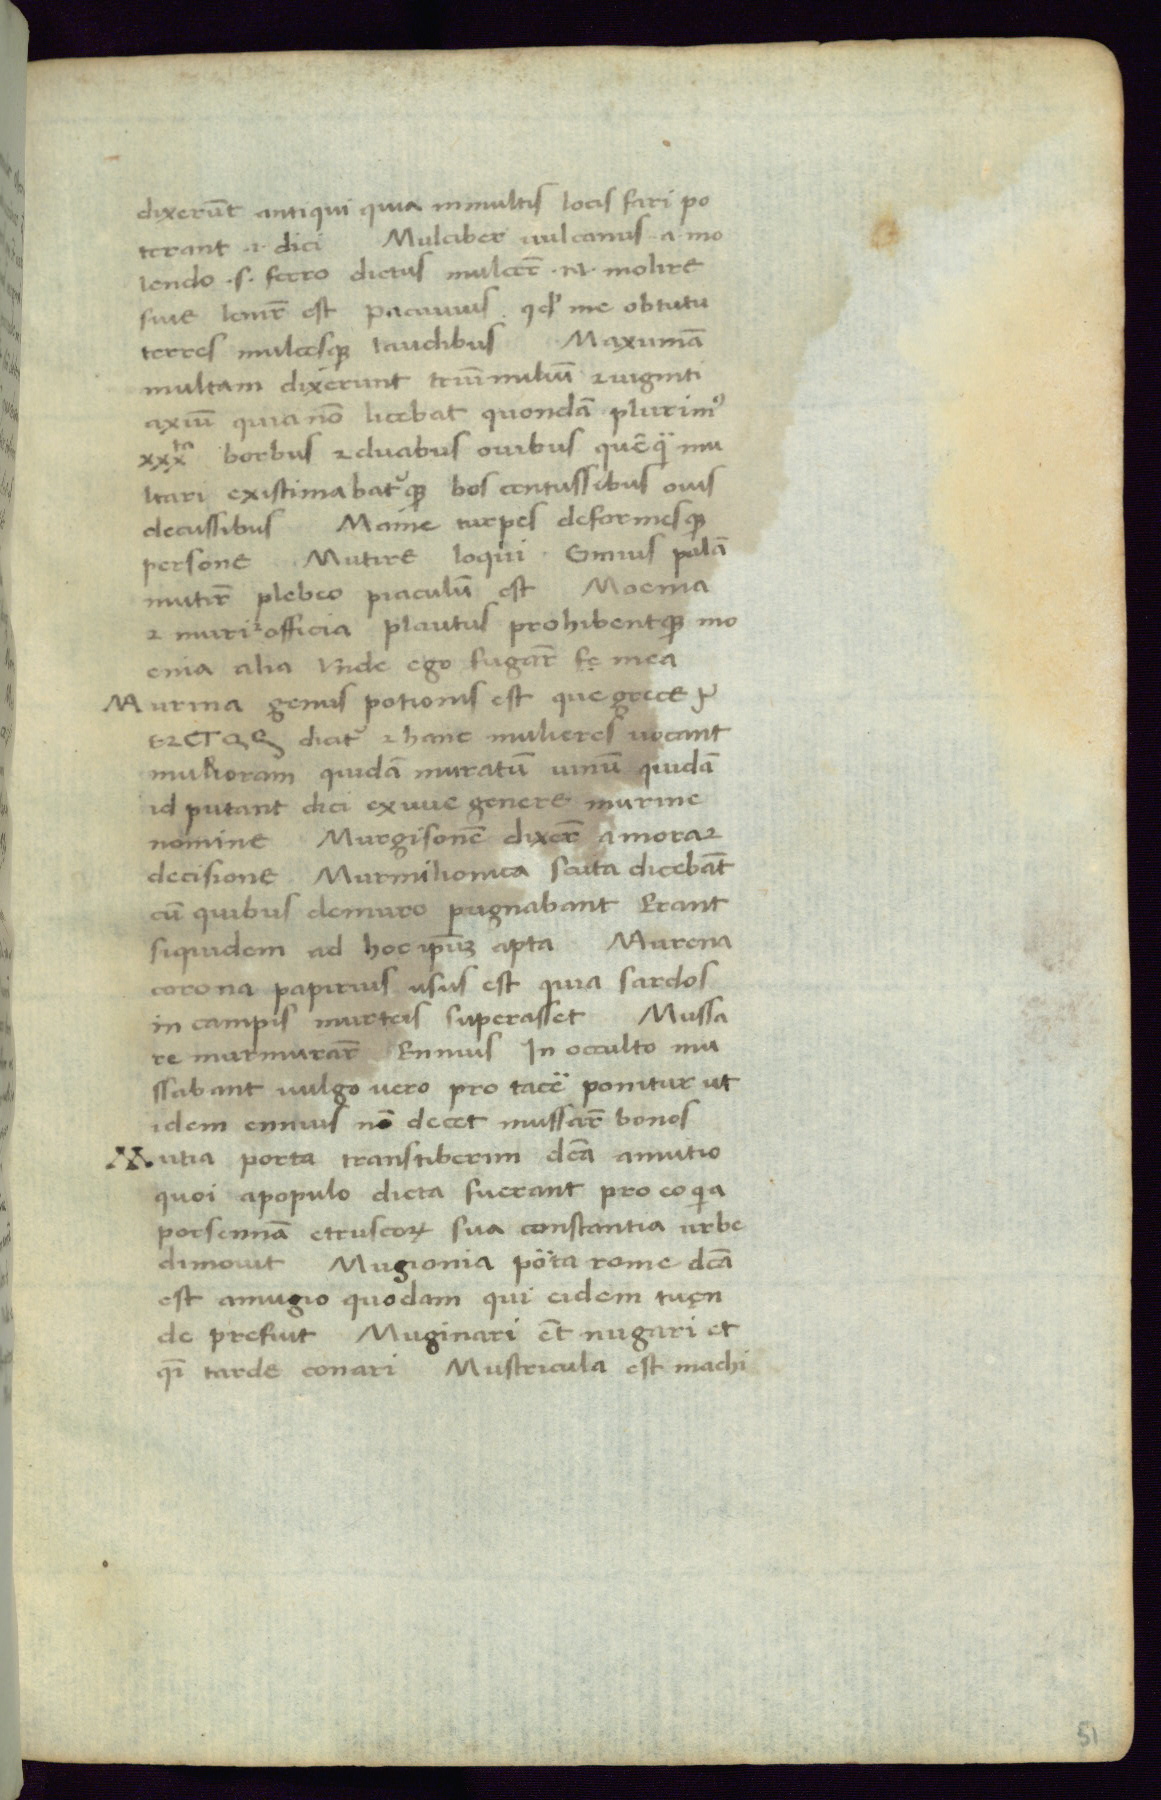 dixerūt antiqui quia inmultis locis fari po
terant ·i· dici Mulciber uulcanus · a · mo
lendo ·s· ferro dictus mulcer̄ ·n̄· molire
siue lenir̄ est pacuuius me obtutu
terres mulcesq; laudibus Maxumā
multam dixerunt triū miliū ⁊ uiginti
axiū quia nō licebat quondā plurimꝰ
xxxta borbus ⁊ duabus ouibus quēq̈ mu
ltari existimabatq; bos centussibus ouis
decussibus Manie turpes deformesq;
persone Mutire loqui · Ennius palā
mutir̄ plebeo piaculū est Moenia
⁊ muri ⁊ officia plautus prohibentq; mo
enia alia Vnde ego fugar̄ mea
Murina genus potionis est que grece
dicit᷑ ⁊ hanc mulieres uocant
murioram quidā muratū uinū quidā
id putant dici ex uue genere murine
nomine Murgisonē dixer̄ a mora ⁊
decisione Murmilionica scuta dicebāt
cū quibus demuro pugnabant Erant
siquidem ad hoc ipūȝ apta Murena
corona papirius usus est quia sardos
in campis murteis superasset Mussa
re murmurar̄ Ennius In occulto mu
ssabant uulgo uero pro tacë ponitur ut
idem ennius nō decet mussar̄ bonos
Mutia porta transtiberim dcā amutio
quoi apopulo dicta fuerant pro eo qia
porsennā etruscoꝝ sua constantia urbe
dimouit Mugionia pörta rome dcā
est amugio quodam qui eidem tuen
de prefuit Muginari ēt nugari et
qī tarde conari Mustricula est machi
51